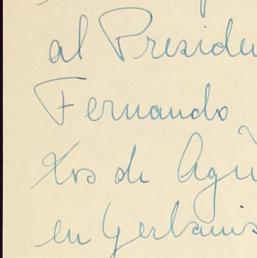 al Preside
Fernando
Xos de Agü
en Gerbanis